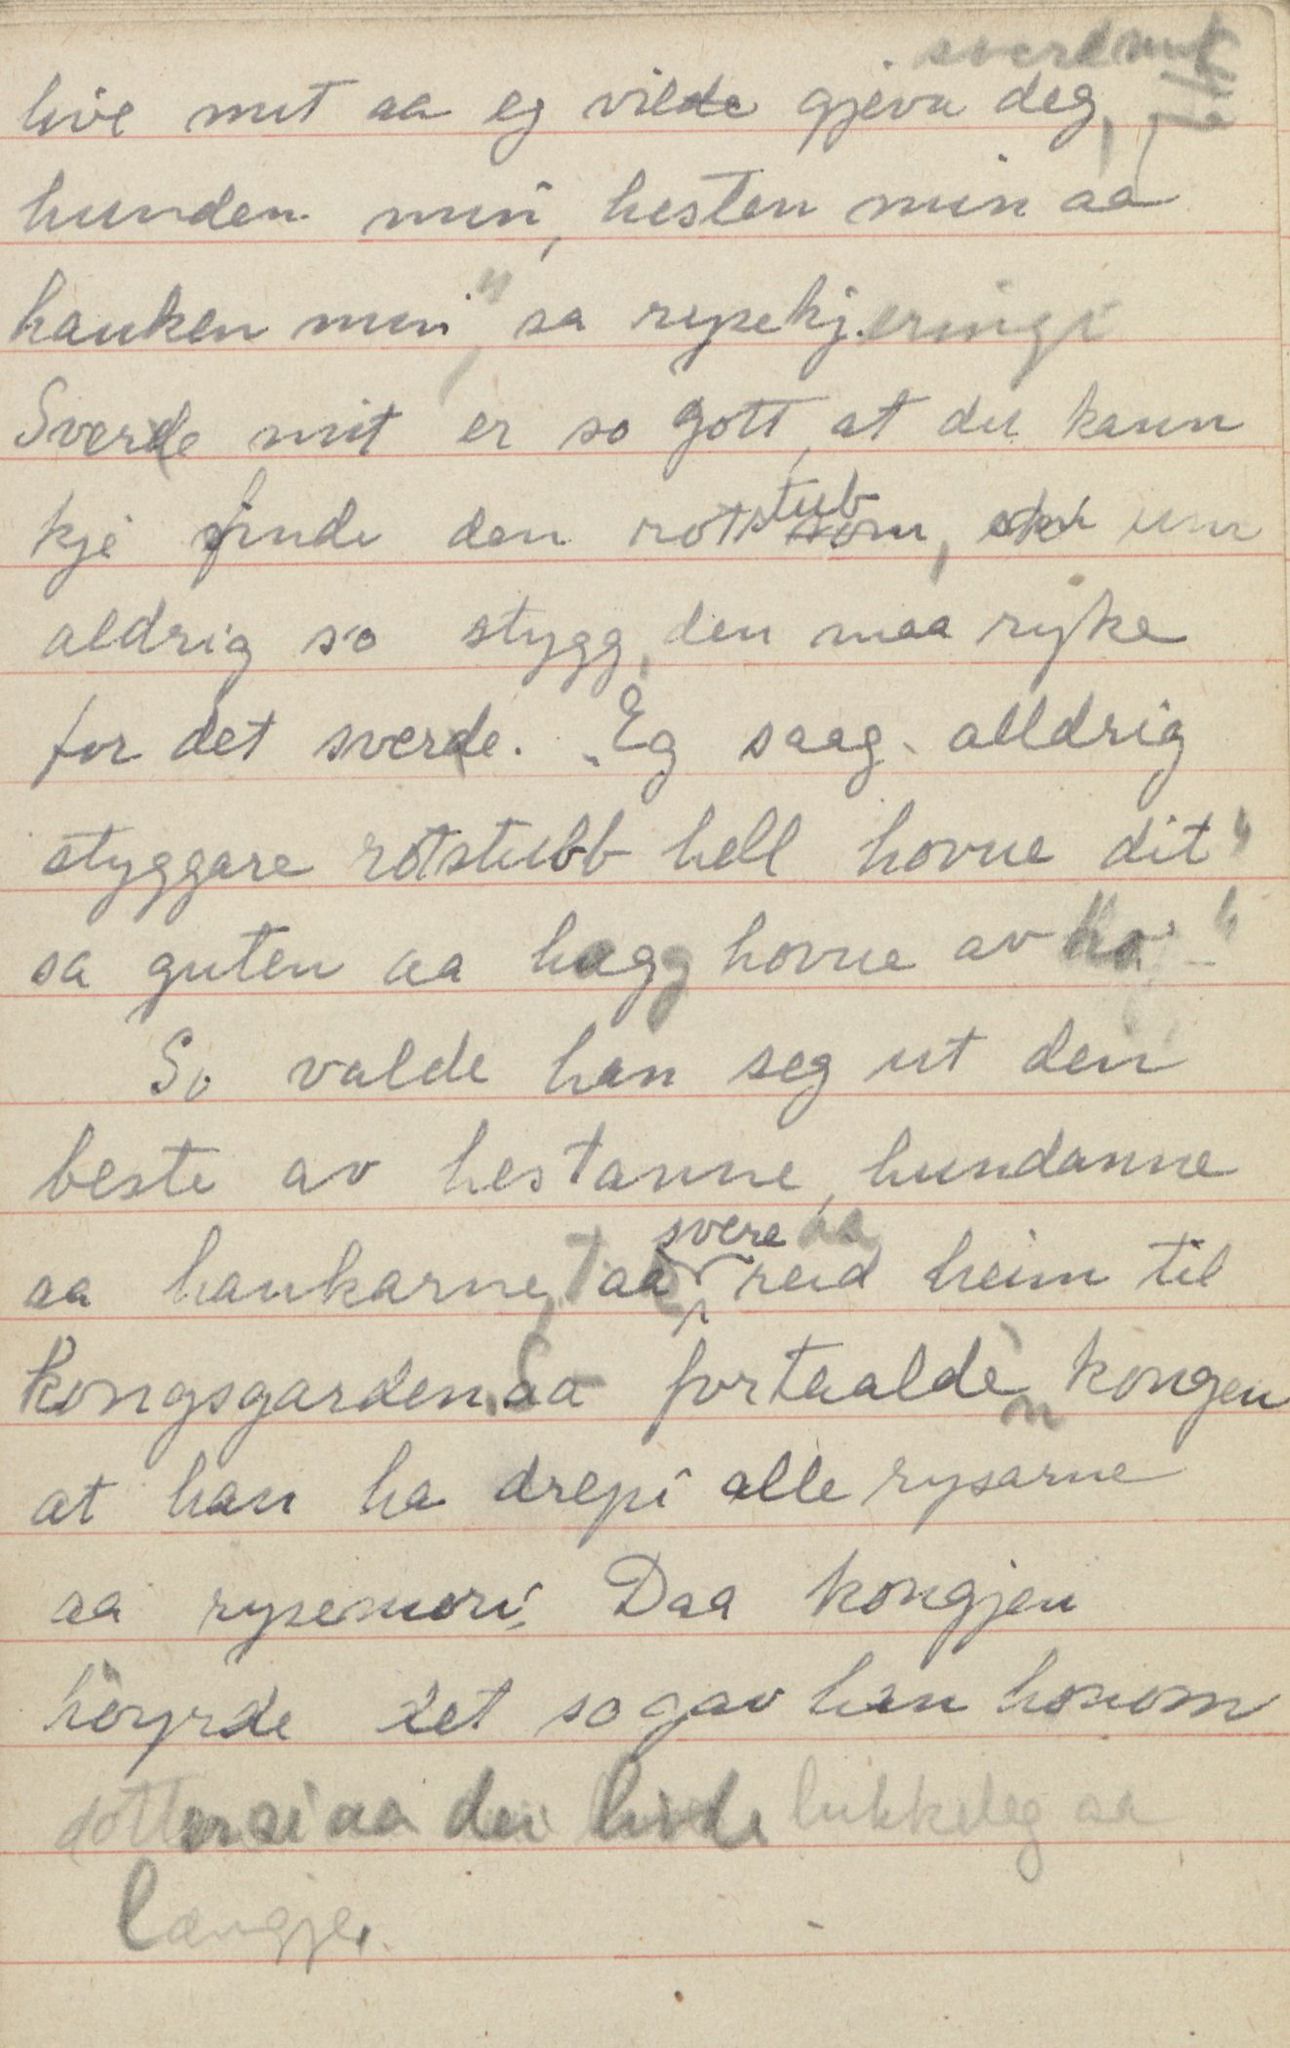 sverd mit
live mit aa eg vilde gjeva deg,
hunden min, hesten min aa
hauken min", sa rysekjeringi
Sverde mit er so gott, at du kann
kje finde den rotstubb, um
aldrig so stygg, den maa ryke
for det sverde. "Eg saag alldrig
styggare rotstubb hell hovue dit"
sa guten aa hagg hovue av ho"
So valde han seg ut den
beste av hestanne, hundanne
svere aa
aa haukarne, reid heim til
Kongsgarden. Saa fortaalde kongen
at han ha drepi alle rysarne
aa rysemori. Daa kongjen
höyrde det so gav han honom
dotter si aa dei livde lukkeleg aa
længje.